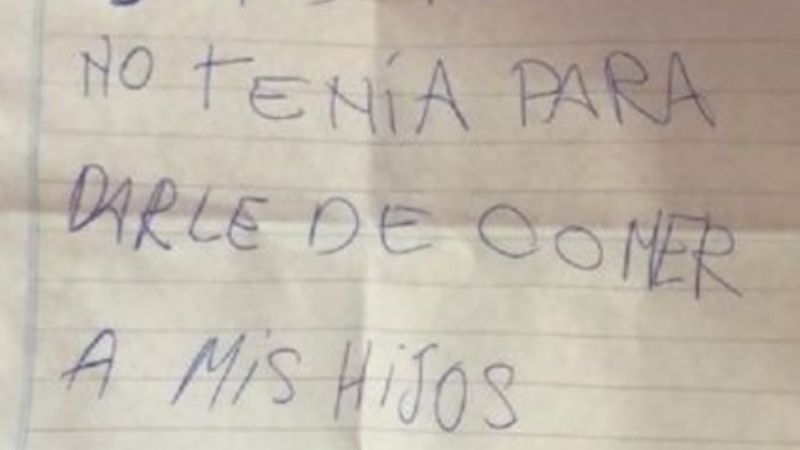 NO TENíA PARA
DARLE DE COMER
A MiS HiJOS